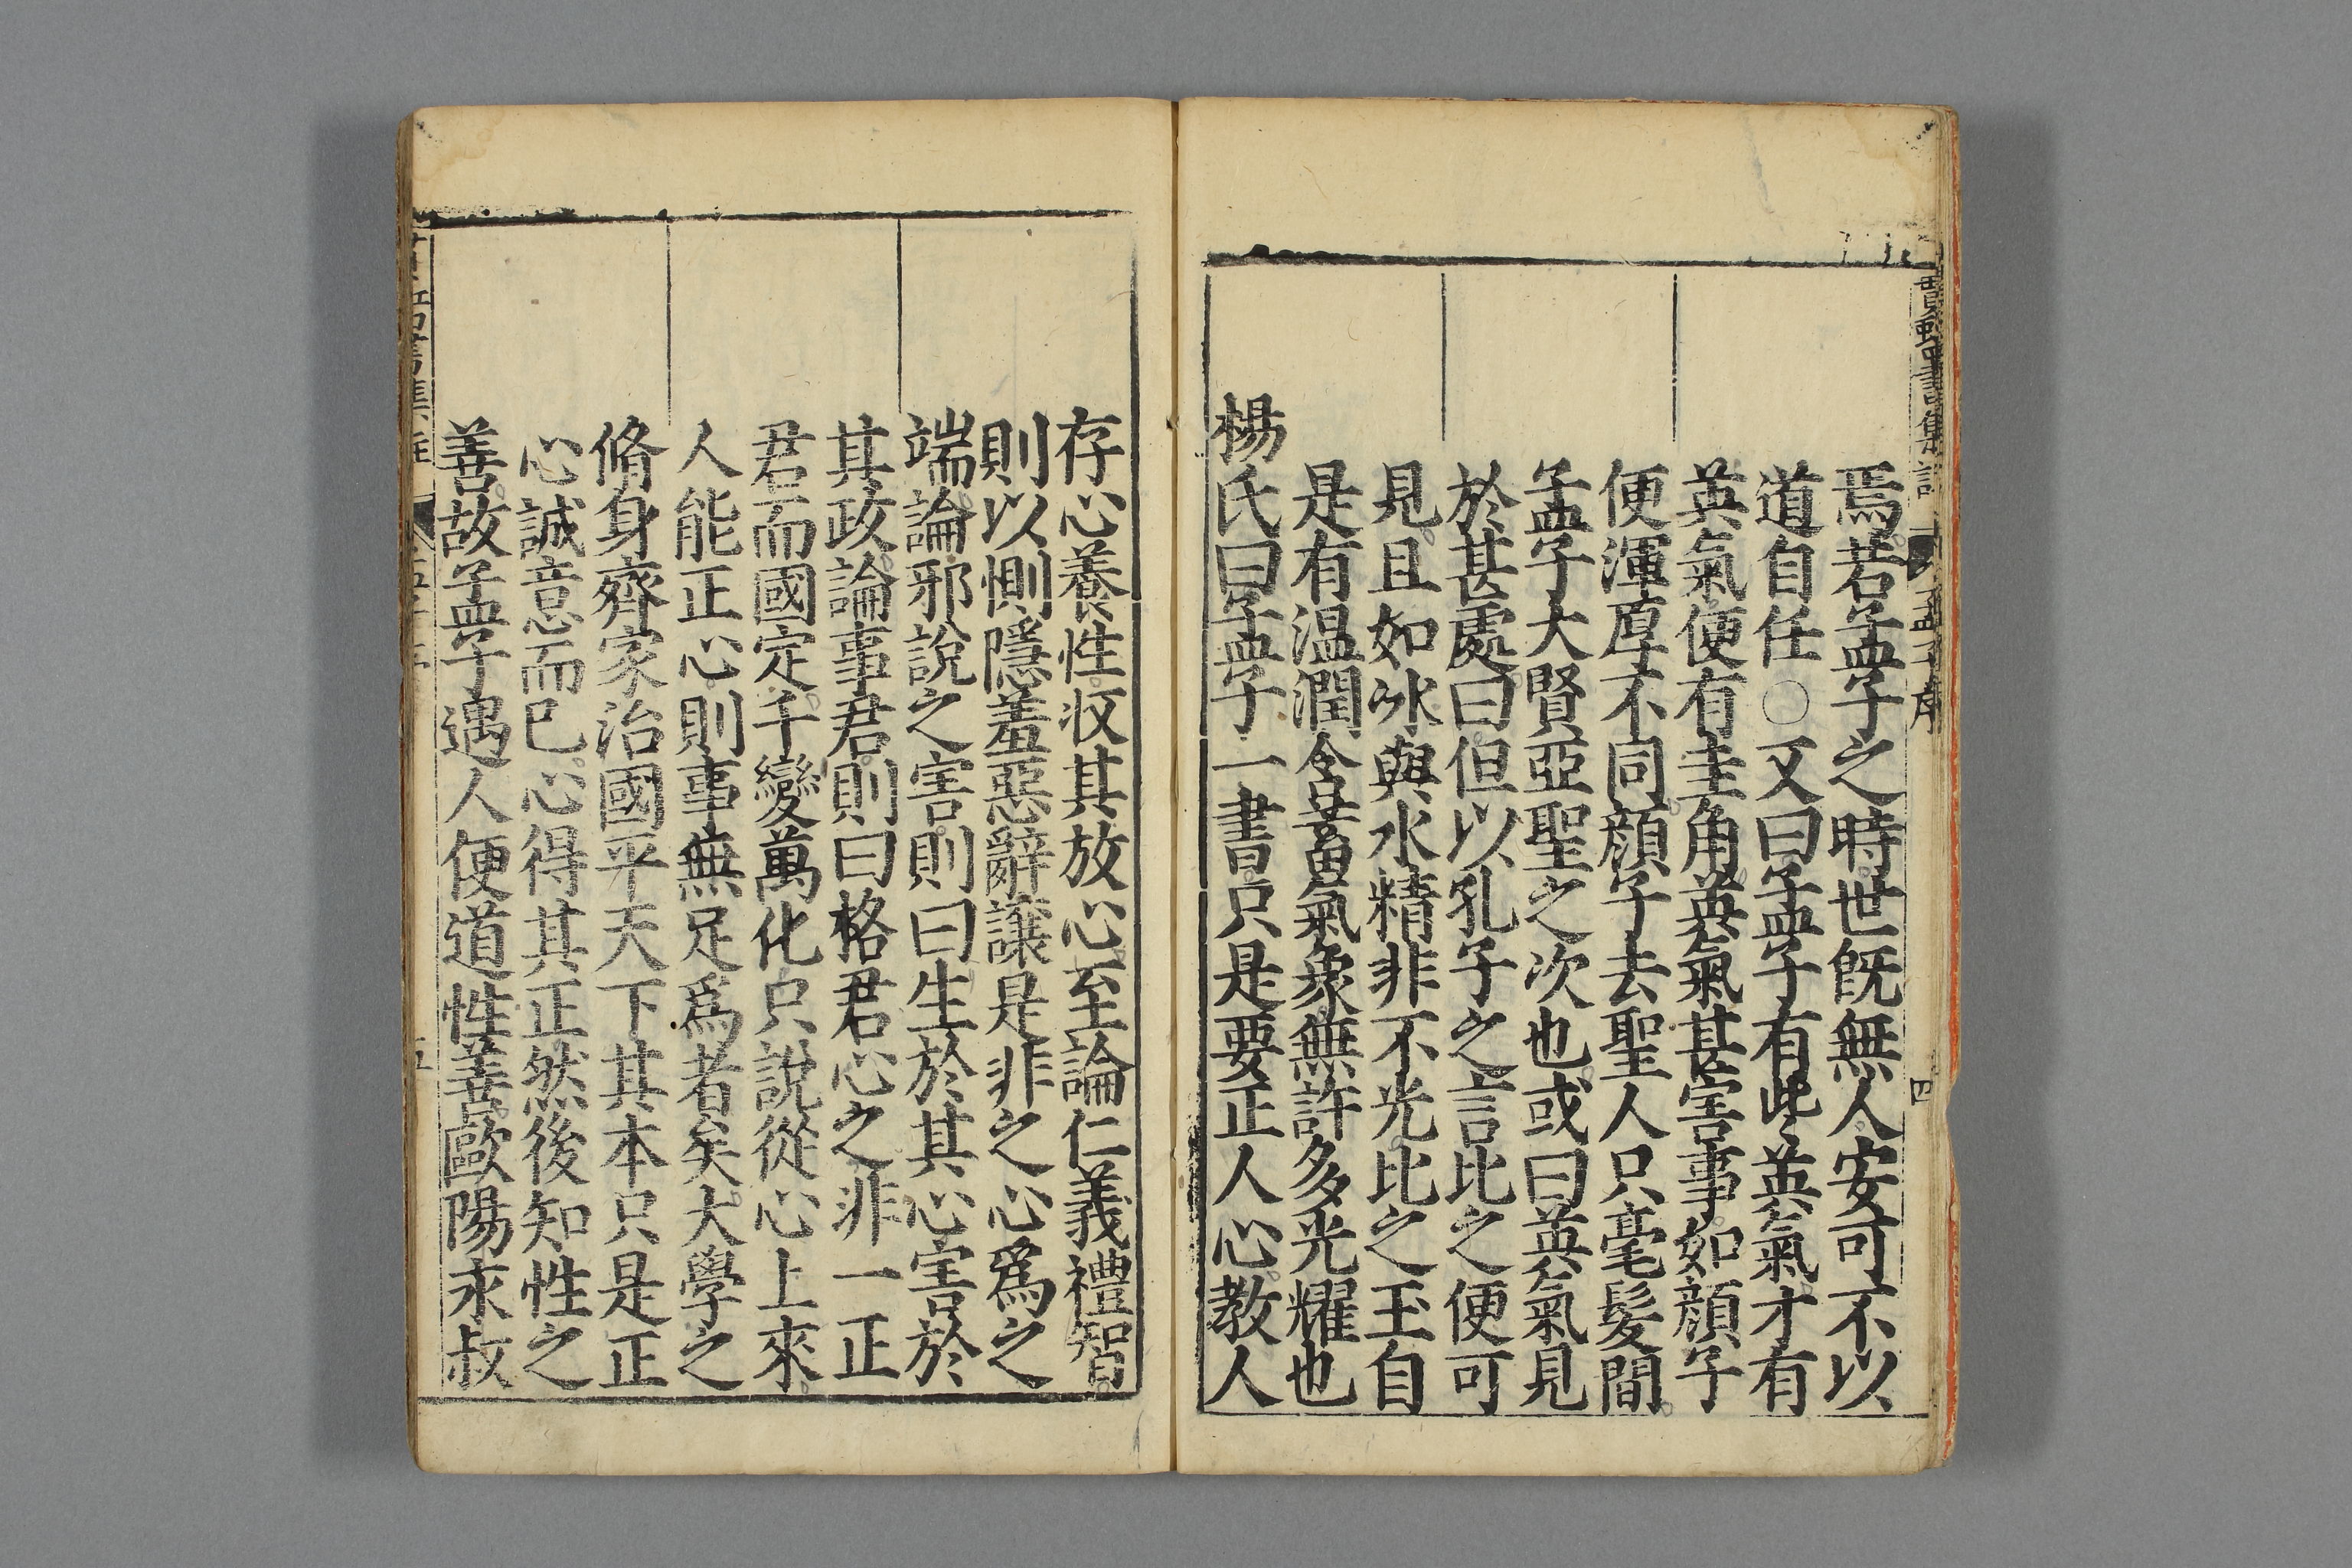 焉若孟子之時世既無人安可不以
道自任〇又曰孟子有此英氣才有
英氣便有圭角英氣甚害事如顔子
便渾厚不同顔子去聖人只毫髮間
孟子大賢亞聖之次也或曰英氣見
於甚處曰但以孔子之言比之便可
見且如氷與水精非不光比之玉自
是有温潤含蓄氣象無許多光耀也
楊氏曰孟子一書只是要正人心教人
存心養性收其放心至論仁義禮智
則以惻隱羞惡辭讓是非之心爲之
端論邪說之害則曰生於其心害於
其政論事君則曰格君心之非一正
君而國定千變萬化只說從心上來
人能正心則事無足爲者矣大學之
脩身齊家治國平天下其本只是正
心誠意而已心得其正然後知性之
善故孟子遇人便道性善歐陽永叔
孟子序
四